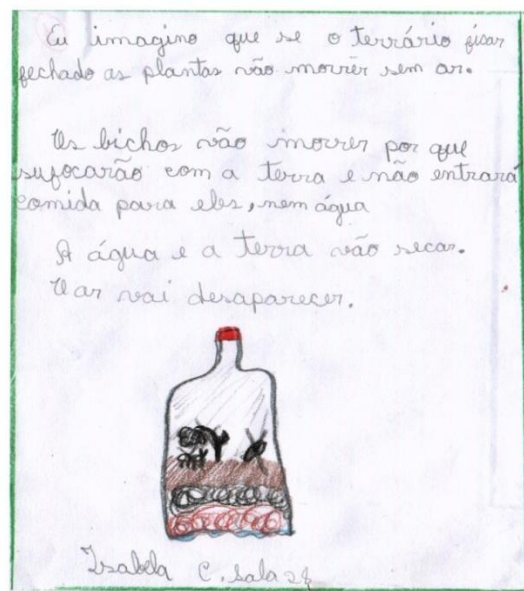 Eu imagino que se o terrário ficar
fechado as plantas vão morrer sem ar.
Os bichos vão morrer por que
sufocarão com a terra e não entrará
comida para eles, nem água
A água e a terra vão secar.
O ar vai desaparecer.
Isabela C. Sala